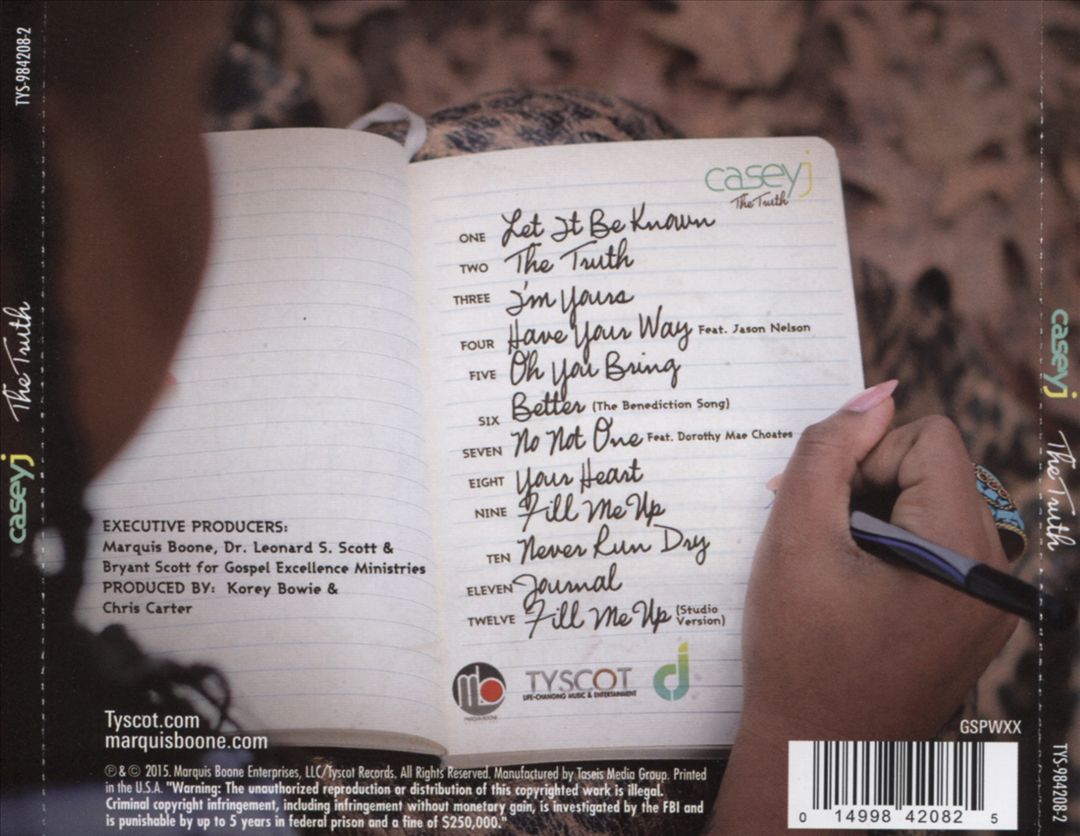 TYS-984208-2
The Truth
caseyj
caseyj
The Truth
ONE Let It Be Known
TWO The Truth
THREE I'm Yours
FOUR Have Your Way Feat. Jason Nelson
FIVE Oh You Bring
SIX Better (The Benediction Song)
SEVEN No Not One Feat. Dorothy Mae Choates
EIGHT Your Heart
NINE Fill Me Up
TEN Never Run Dry
ELEVEN Journal
TWELVE Fill Me Up (Studio Version)
EXECUTIVE PRODUCERS:
Marquis Boone, Dr. Leonard S. Scott &
Bryant Scott for Gospel Excellence Ministries
PRODUCED BY: Korey Bowie &
Chris Carter
mb
MARQUIS BOONE
TYSCOT
LIFE-CHANGING MUSIC & ENTERTAINMENT
cj
Tyscot.com
marquisboone.com
℗ & © 2015. Marquis Boone Enterprises, LLC/Tyscot Records. All Rights Reserved. Manufactured by Taseis Media Group. Printed
in the U.S.A. "Warning: The unauthorized reproduction or distribution of this copyrighted work is illegal.
Criminal copyright infringement, including infringement without monetary gain, is investigated by the FBI and
is punishable by up to 5 years in federal prison and a fine of $250,000."
GSPWXX
0 14998 42082 5
caseyj
The Truth
TYS-984208-2